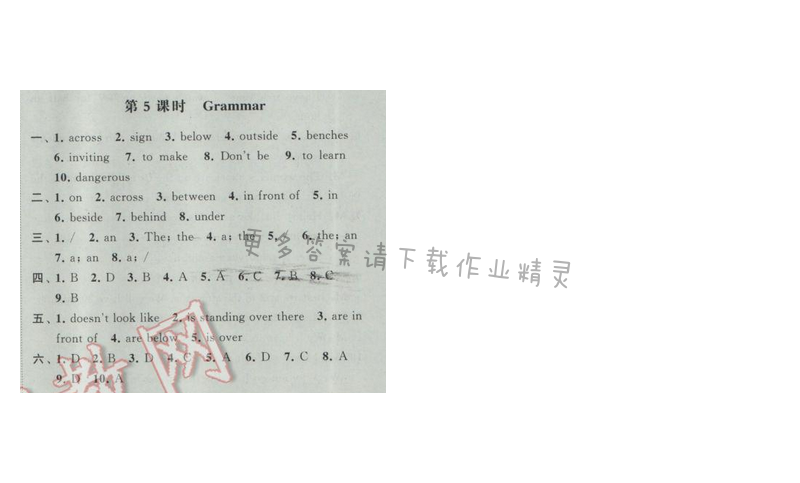 第 5 课时 Grammar
一、1. across 2. sign 3. below 4. outside 5. benches
6. inviting 7. to make 8. Don't be 9. to learn
10. dangerous
二、1. on 2. across 3. between 4. in front of 5. in
6. beside 7. behind 8. under
三、1. / 2. an 3. The; the 4. a; the 5. 6. the; an
7. a; an 8. a; /
更多答案请下载作业精灵
四、1. B 2. D 3. B 4. A 5. A 6. C 7. B 8. C
9. B
五、1. doesn't look like 2. is standing over there 3. are in
front of 4. are below 5. is over
六、1. D 2. B 3. D 4. C 5. A 6. D 7. C 8. A
9. D 10. A
教网